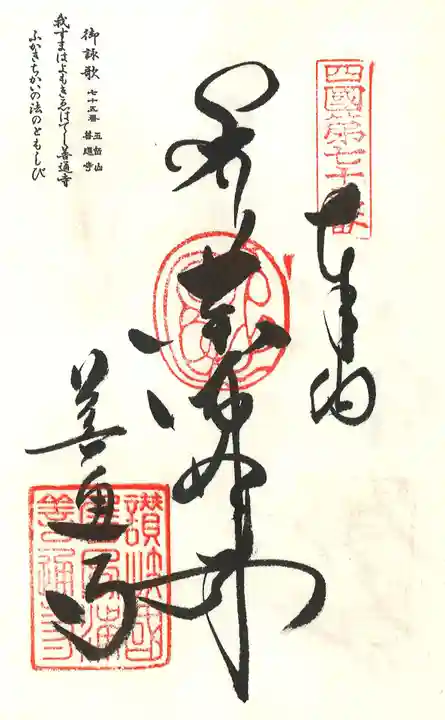 四國第七十五番
奉納
善通寺
讃岐國
屏風浦
善通寺
御詠歌 七十五番 五岳山 善通寺
我すまはよもきゑはてじ善通寺
ふかきちかいの法のともしび